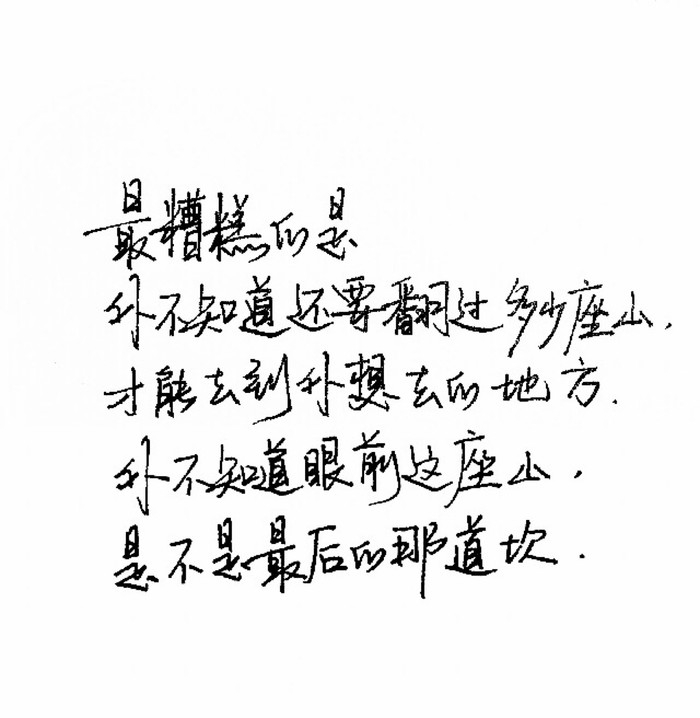 最糟糕的是
你不知道还要翻过多少座山,
才能去到你想去的地方.
你不知道眼前这座山,
是不是最后的那道坎.